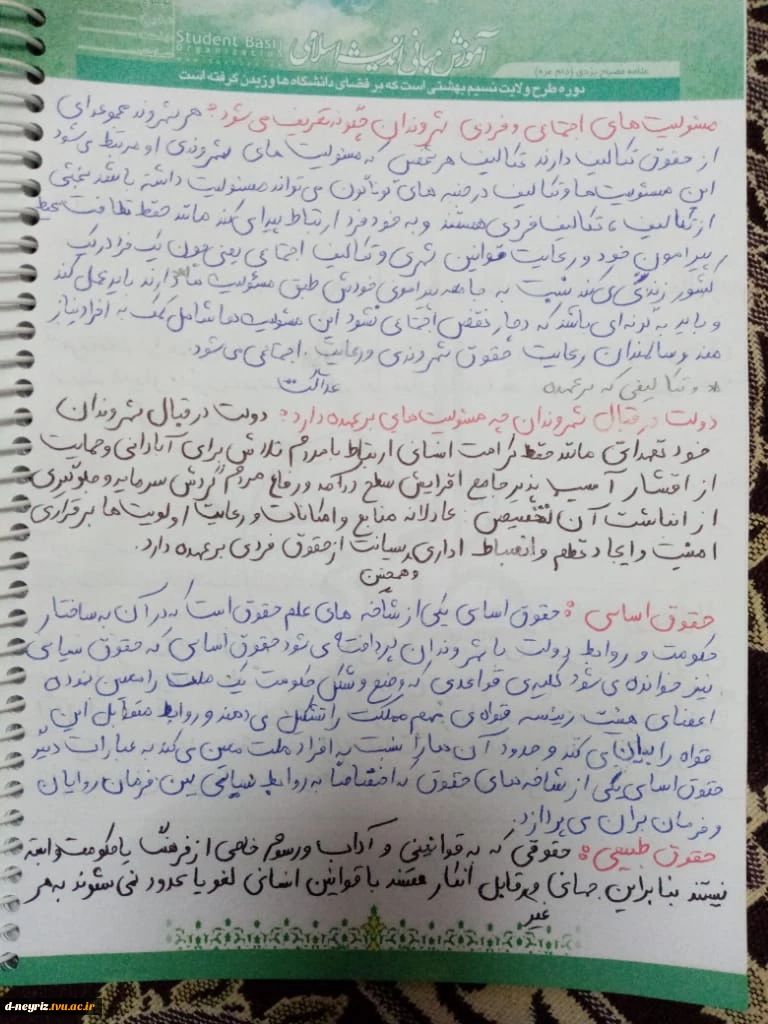 Student Basij
Organization
آموزش مبانی اندیشه اسلامی
علامه مصباح یزدی (دام عزه)
دوره طرح ولایت نسیم بهشتی است که بر فضای دانشگاه ها وزیدن گرفته است
مسئولیت های اجتماعی و فردی شهروندان چگونه تعریف می شود: هر شهروند مجموعه ای
از حقوق تکالیف دارند تکالیف هر شخص که مسئولیت های شهروندی او مرتبط می شود
این مسئولیت ها و تکالیف در جنبه های گوناگون می تواند مسئولیت داشته باشند بخشی
از تکالیف، تکالیف فردی هستند و به خود فرد ارتباط پیدا می کند مانند حفظ نظافت محیط
پیرامون خود و رعایت قوانین شهری و تکالیف اجتماعی یعنی چون یک فرد در یک
کشور زندگی می کند نسبت به جامعه پیرامونی خودش طبق مسئولیت ها دارند باید عمل کند
و باید به گونه ای باشد که دچار نقض اجتماعی نشود این مسئولیت ها شامل کمک به افراد نیاز
مند و سالمندان رعایت حقوق شهروندی و رعایت عدالت اجتماعی می شود.
* و تکالیفی که بر عهده
دولت در قبال شهروندان چه مسئولیت هایی بر عهده دارد: دولت در قبال شهروندان
خود تعهداتی مانند حفظ کرامت انسانی ارتباط با مردم تلاش برای آبادانی و حمایت
از اقشار آسیب پذیر جامع افزایش سطح درآمد و رفاع مردم گردش سرمایه و جلوگیری
از انباشت آن تخصیص عادلانه منابع و امکانات و رعایت اولویت ها برقراری
امنیت و ایجاد نظم و انضباط اداری و همچنین سیانت از حقوق فردی بر عهده دارد.
حقوق اساسی: حقوق اساسی یکی از شاخه های علم حقوق است که در آن به ساختار
حکومت و روابط دولت با شهروندان پرداخته می شود حقوق اساسی که حقوق سیاسی
نیز خوانده می شود کلیه ی قواعدی که وضع و شکل حکومت یک ملت را معین نموده
اعضای هیئت رییسه قواه ی مملکت را تشکیل می دهند و روابط متقابل این
قواه را بیان می کند و حدود آن ها را نسبت به افراد ملت معین می کند به عبارات دیگر
حقوق اساسی یکی از شاخه های حقوق که اختصاصا به روابط سیاسی بین فرمان روایان
و فرمان بران می پردازد.
حقوق طبیعی: حقوقی که به قوانینی و آداب و رسوم خاصی از فرهنگ یا حکومت وابسته
نیستند بنابراین جهانی و غیر قابل انکار هستند با قوانین انسانی لغو یا محدود نمی شوند به هر
d-neyriz.tvu.ac.ir